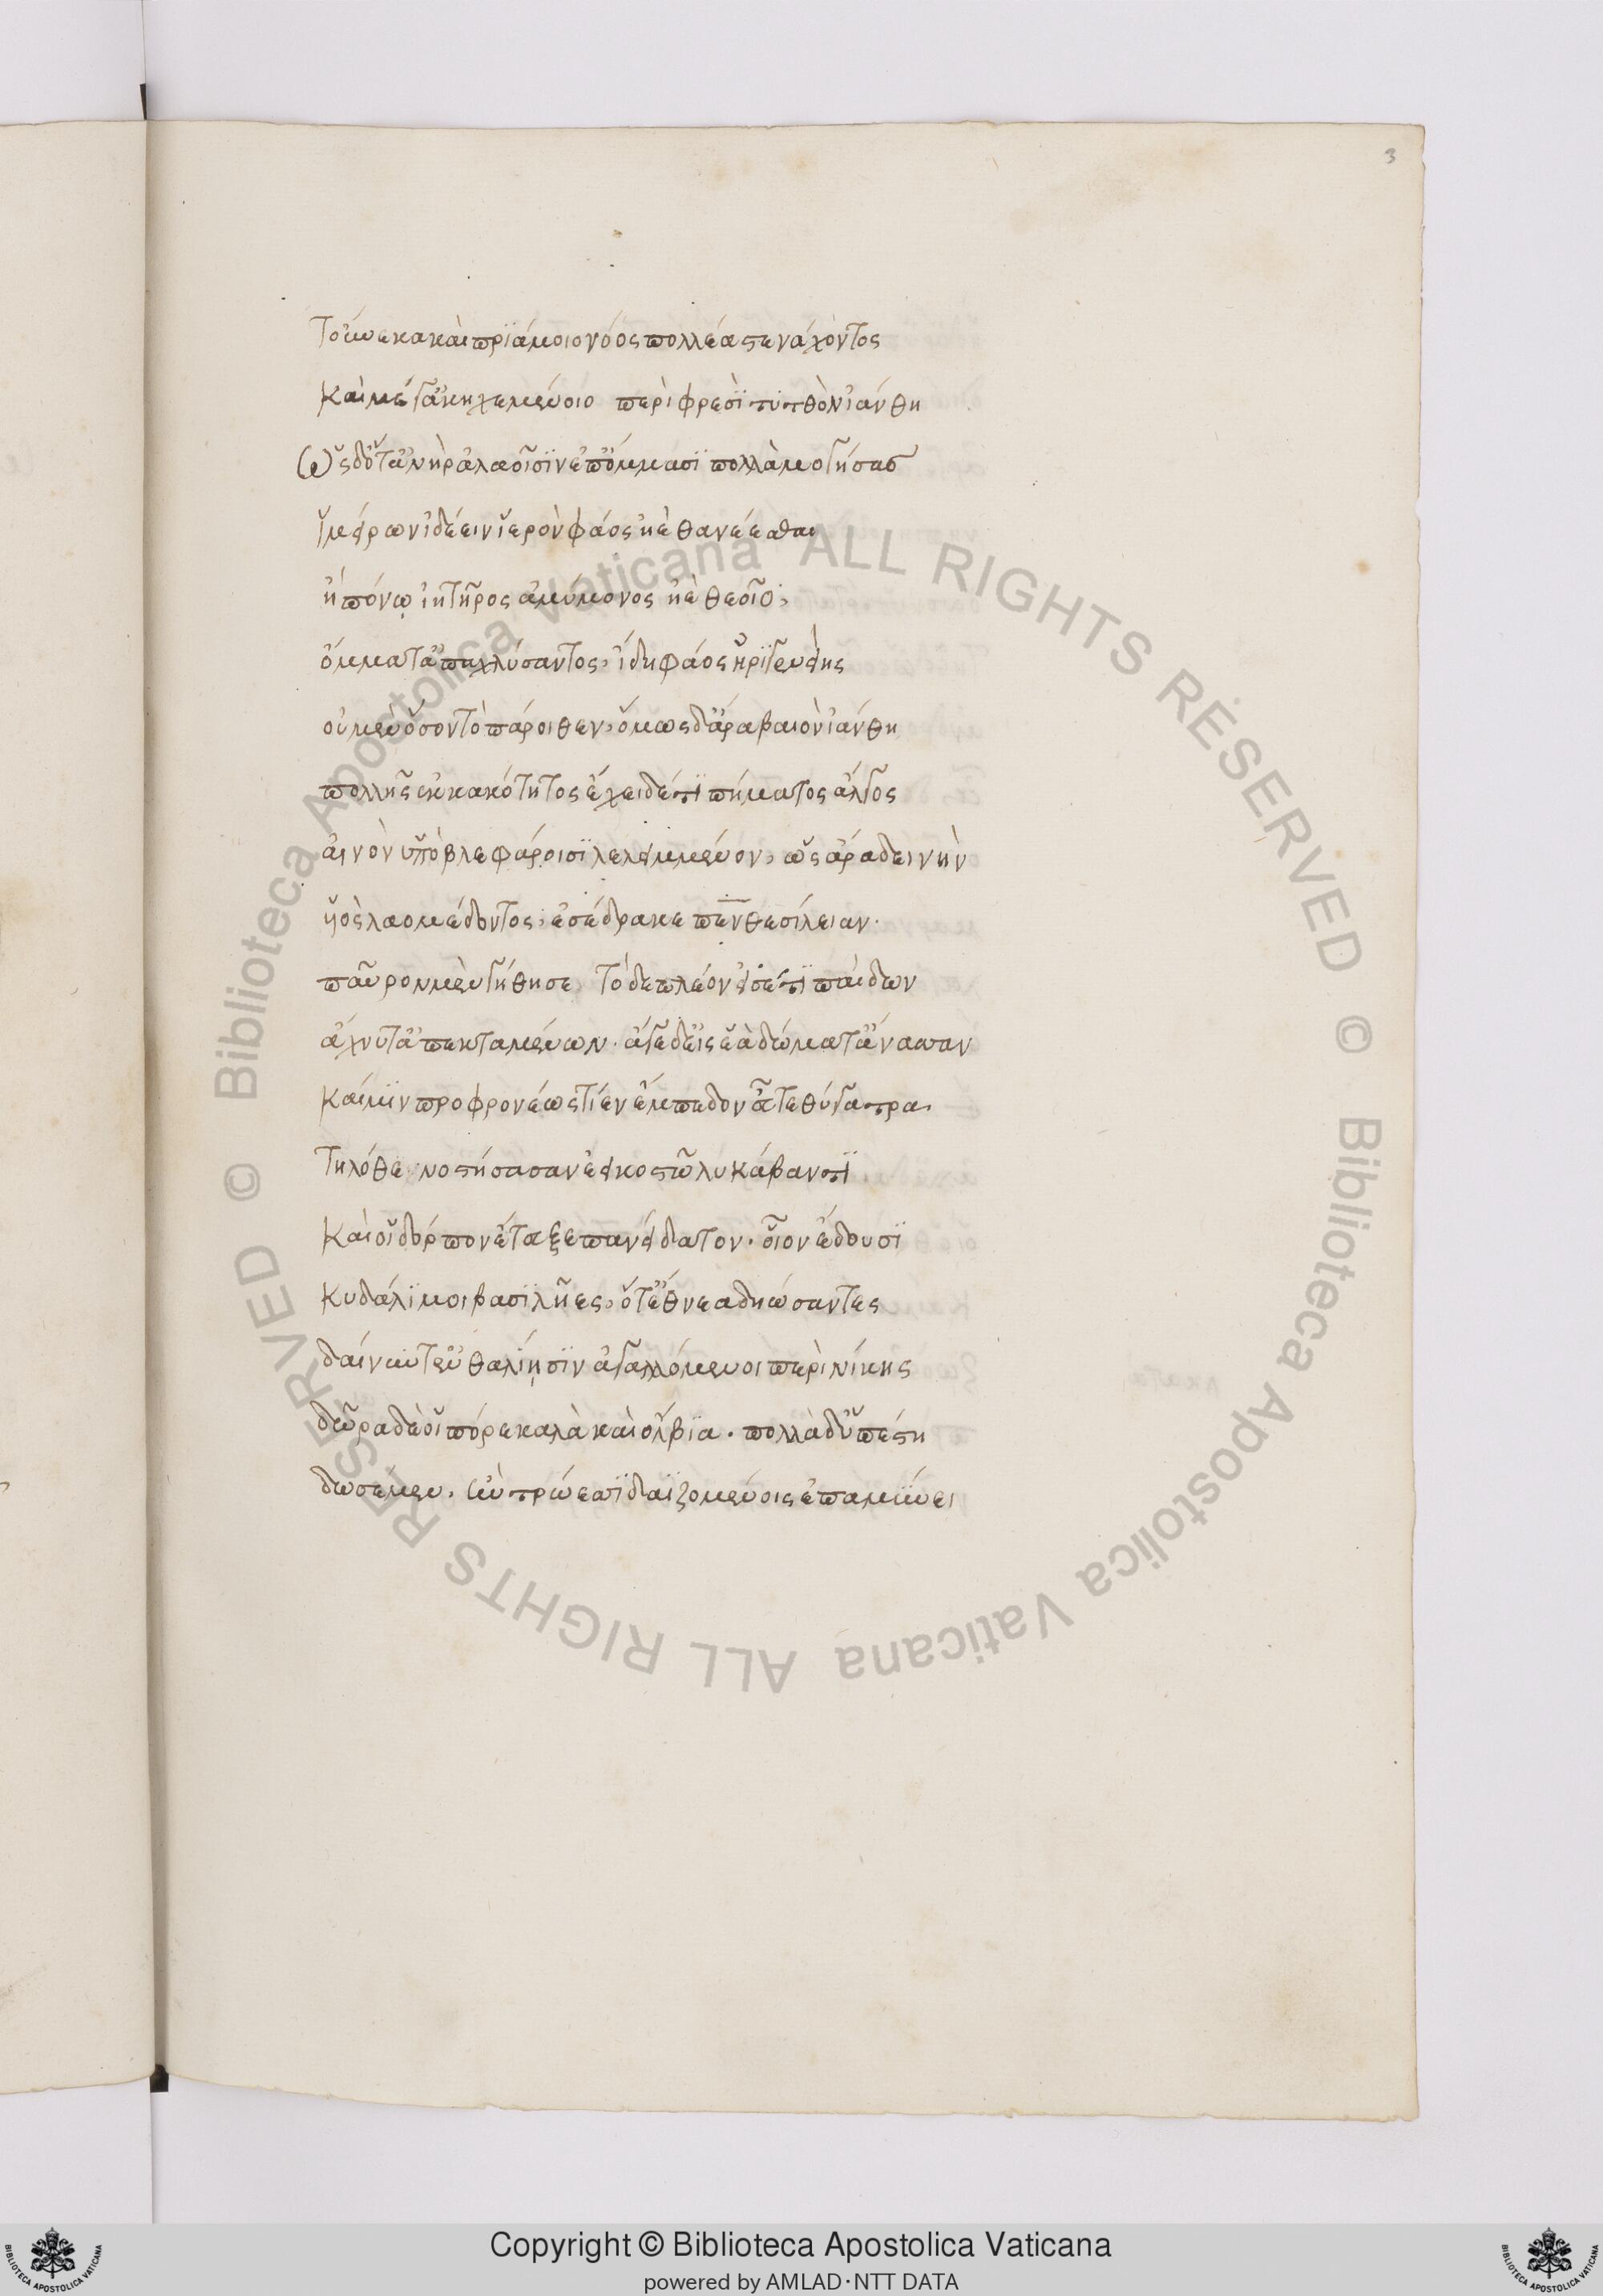 3
Τούνεκα καὶ πριάμοιο νόος πολλέα στεναχόντος
καὶ μέγ' ἀκηχεμένοιο περὶ φρεσὶ τυτθὸν ἰάνθη
ὡς δ' ὅτ' ἀνὴρ ἀλαοῖσιν ἐπ' ὄμμασι πολλὰ μογήσας
ἱμείρων ἰδέειν ἱερὸν φάος ἠὲ θανέεσθαι
ἢ πόνῳ ἰητῆρος ἀμύμονος ἠὲ θεοῖο,
ὄμματ' ἀπαχλύσαντος, ἴδῃ φάος ἠριγενείης
οὐ μὲν ὅσον τὸ πάροιθεν, ὅμως δ' ἄρα βαιὸν ἰάνθη
πολλῆς ἐκ κακότητος ἔχει δ' ἔτι πήματος ἄλγος
αἰνὸν ὑπὸ βλεφάροισι λελειμμένον, ὣς ἄρα δεινὴν
υἱὸς λαομέδοντος, ἐσέδρακε πενθεσίλειαν.
παῦρον μὲν γήθησε, τὸ δὲ πλέον εἰσέτι παίδων
ἄχνυτ' ἀπεκταμένων. ἄγε δ' εἰς ἑὰ δώματ' ἄνασσαν
καί μιν προφρονέως τίεν ἔμπεδον ἅτε θύγατρα
τηλόθε νοστήσασαν ἐεικοστῶ λυκάβαντι
καὶ οἱ δόρπον ἔταξε πανείδατον. οἷον ἔδουσι
κυδάλιμοι βασιλῆες, ὅτ' ἔθνεα δηώσαντες
δαίνυντ' ἐν θαλίῃσιν ἀγαλλόμενοι περὶ νίκης
δῶρα δέ οἱ πόρε καλὰ καὶ ὄλβια. πολλὰ δ' ὑπέστη
δωσέμεν. ἢν τρώεσσι δαϊζομένοις ἐπαμύνει
Biblioteca Apostolica Vaticana ALL RIGHTS RESERVED ©
Biblioteca Apostolica Vaticana ALL RIGHTS RESERVED ©
Copyright © Biblioteca Apostolica Vaticana
powered by AMLAD·NTT DATA
BIBLIOTECA APOSTOLICA VATICANA
BIBLIOTECA APOSTOLICA VATICANA